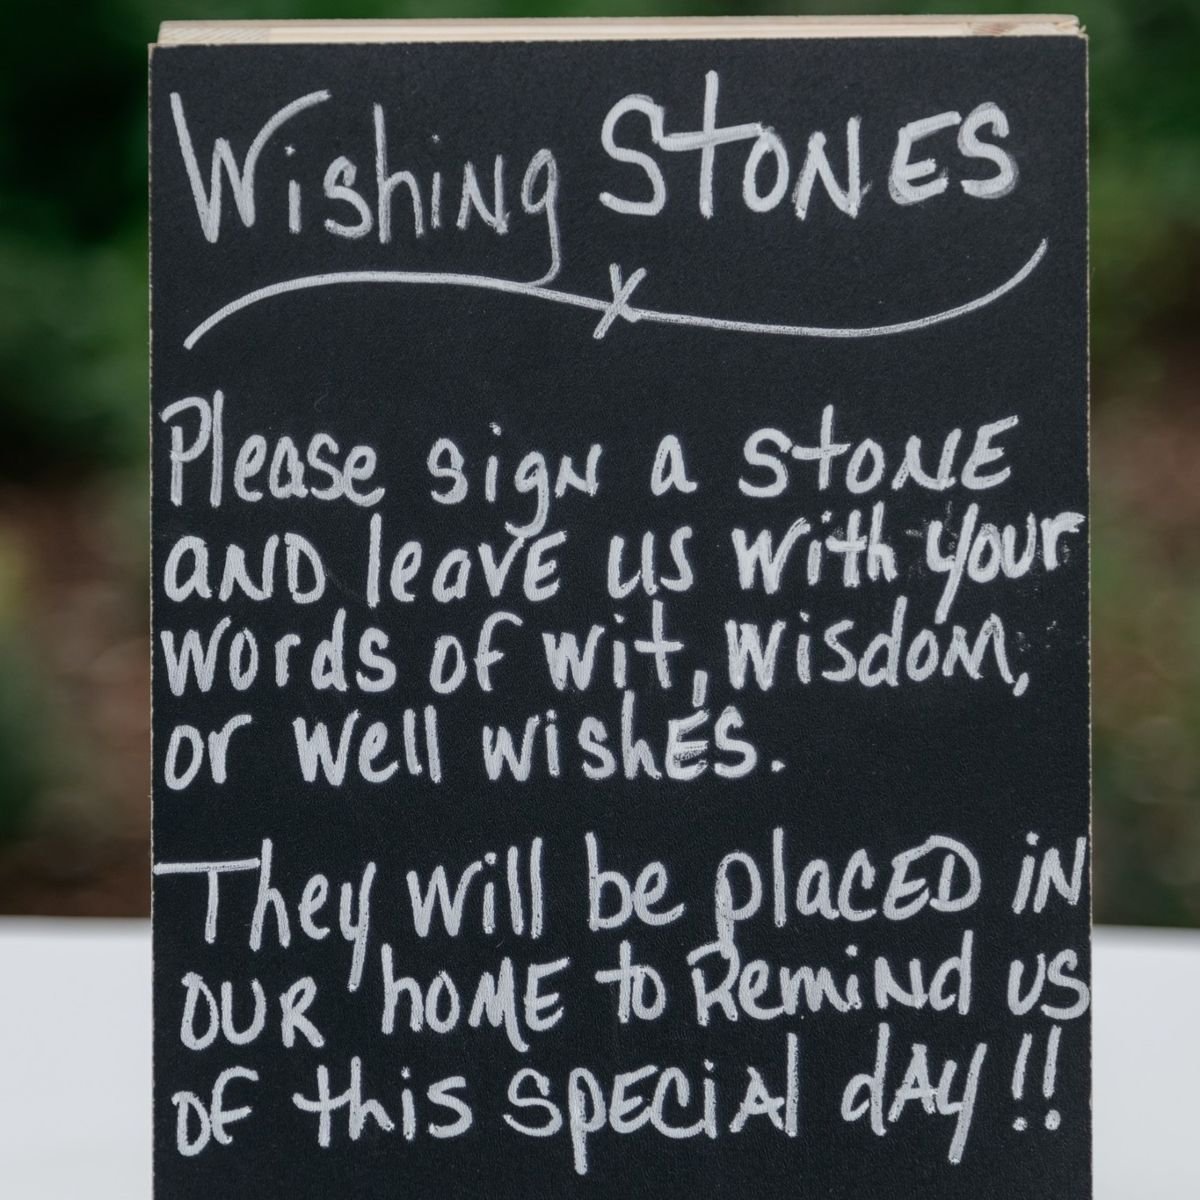 Wishing STONES
Please sign a STONE
AND leave us with your
words of wit, wisdom,
or well wishes.
They will be placed in
our home to Remind us
of this special day!!